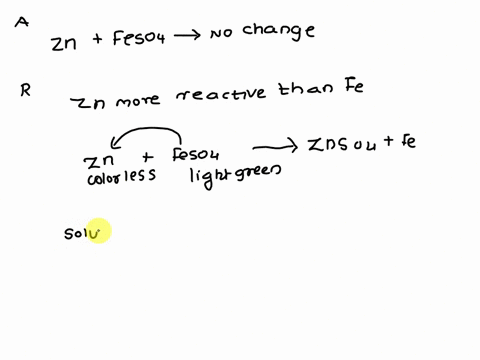 A
Zn + FeSO4 → No change
R
Zn more reactive than Fe
Zn + FeSO4 → ZnSO4 + Fe
colorless light green
solu